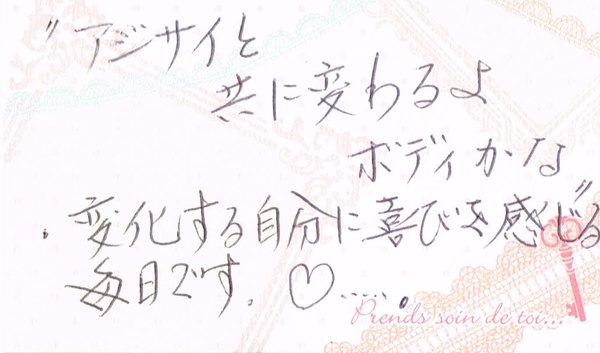 "アジサイと
共に変わるよ
ボディかな"
・変化する自分に喜びを感じる
毎日です。♡.....。
Prends soin de toi...